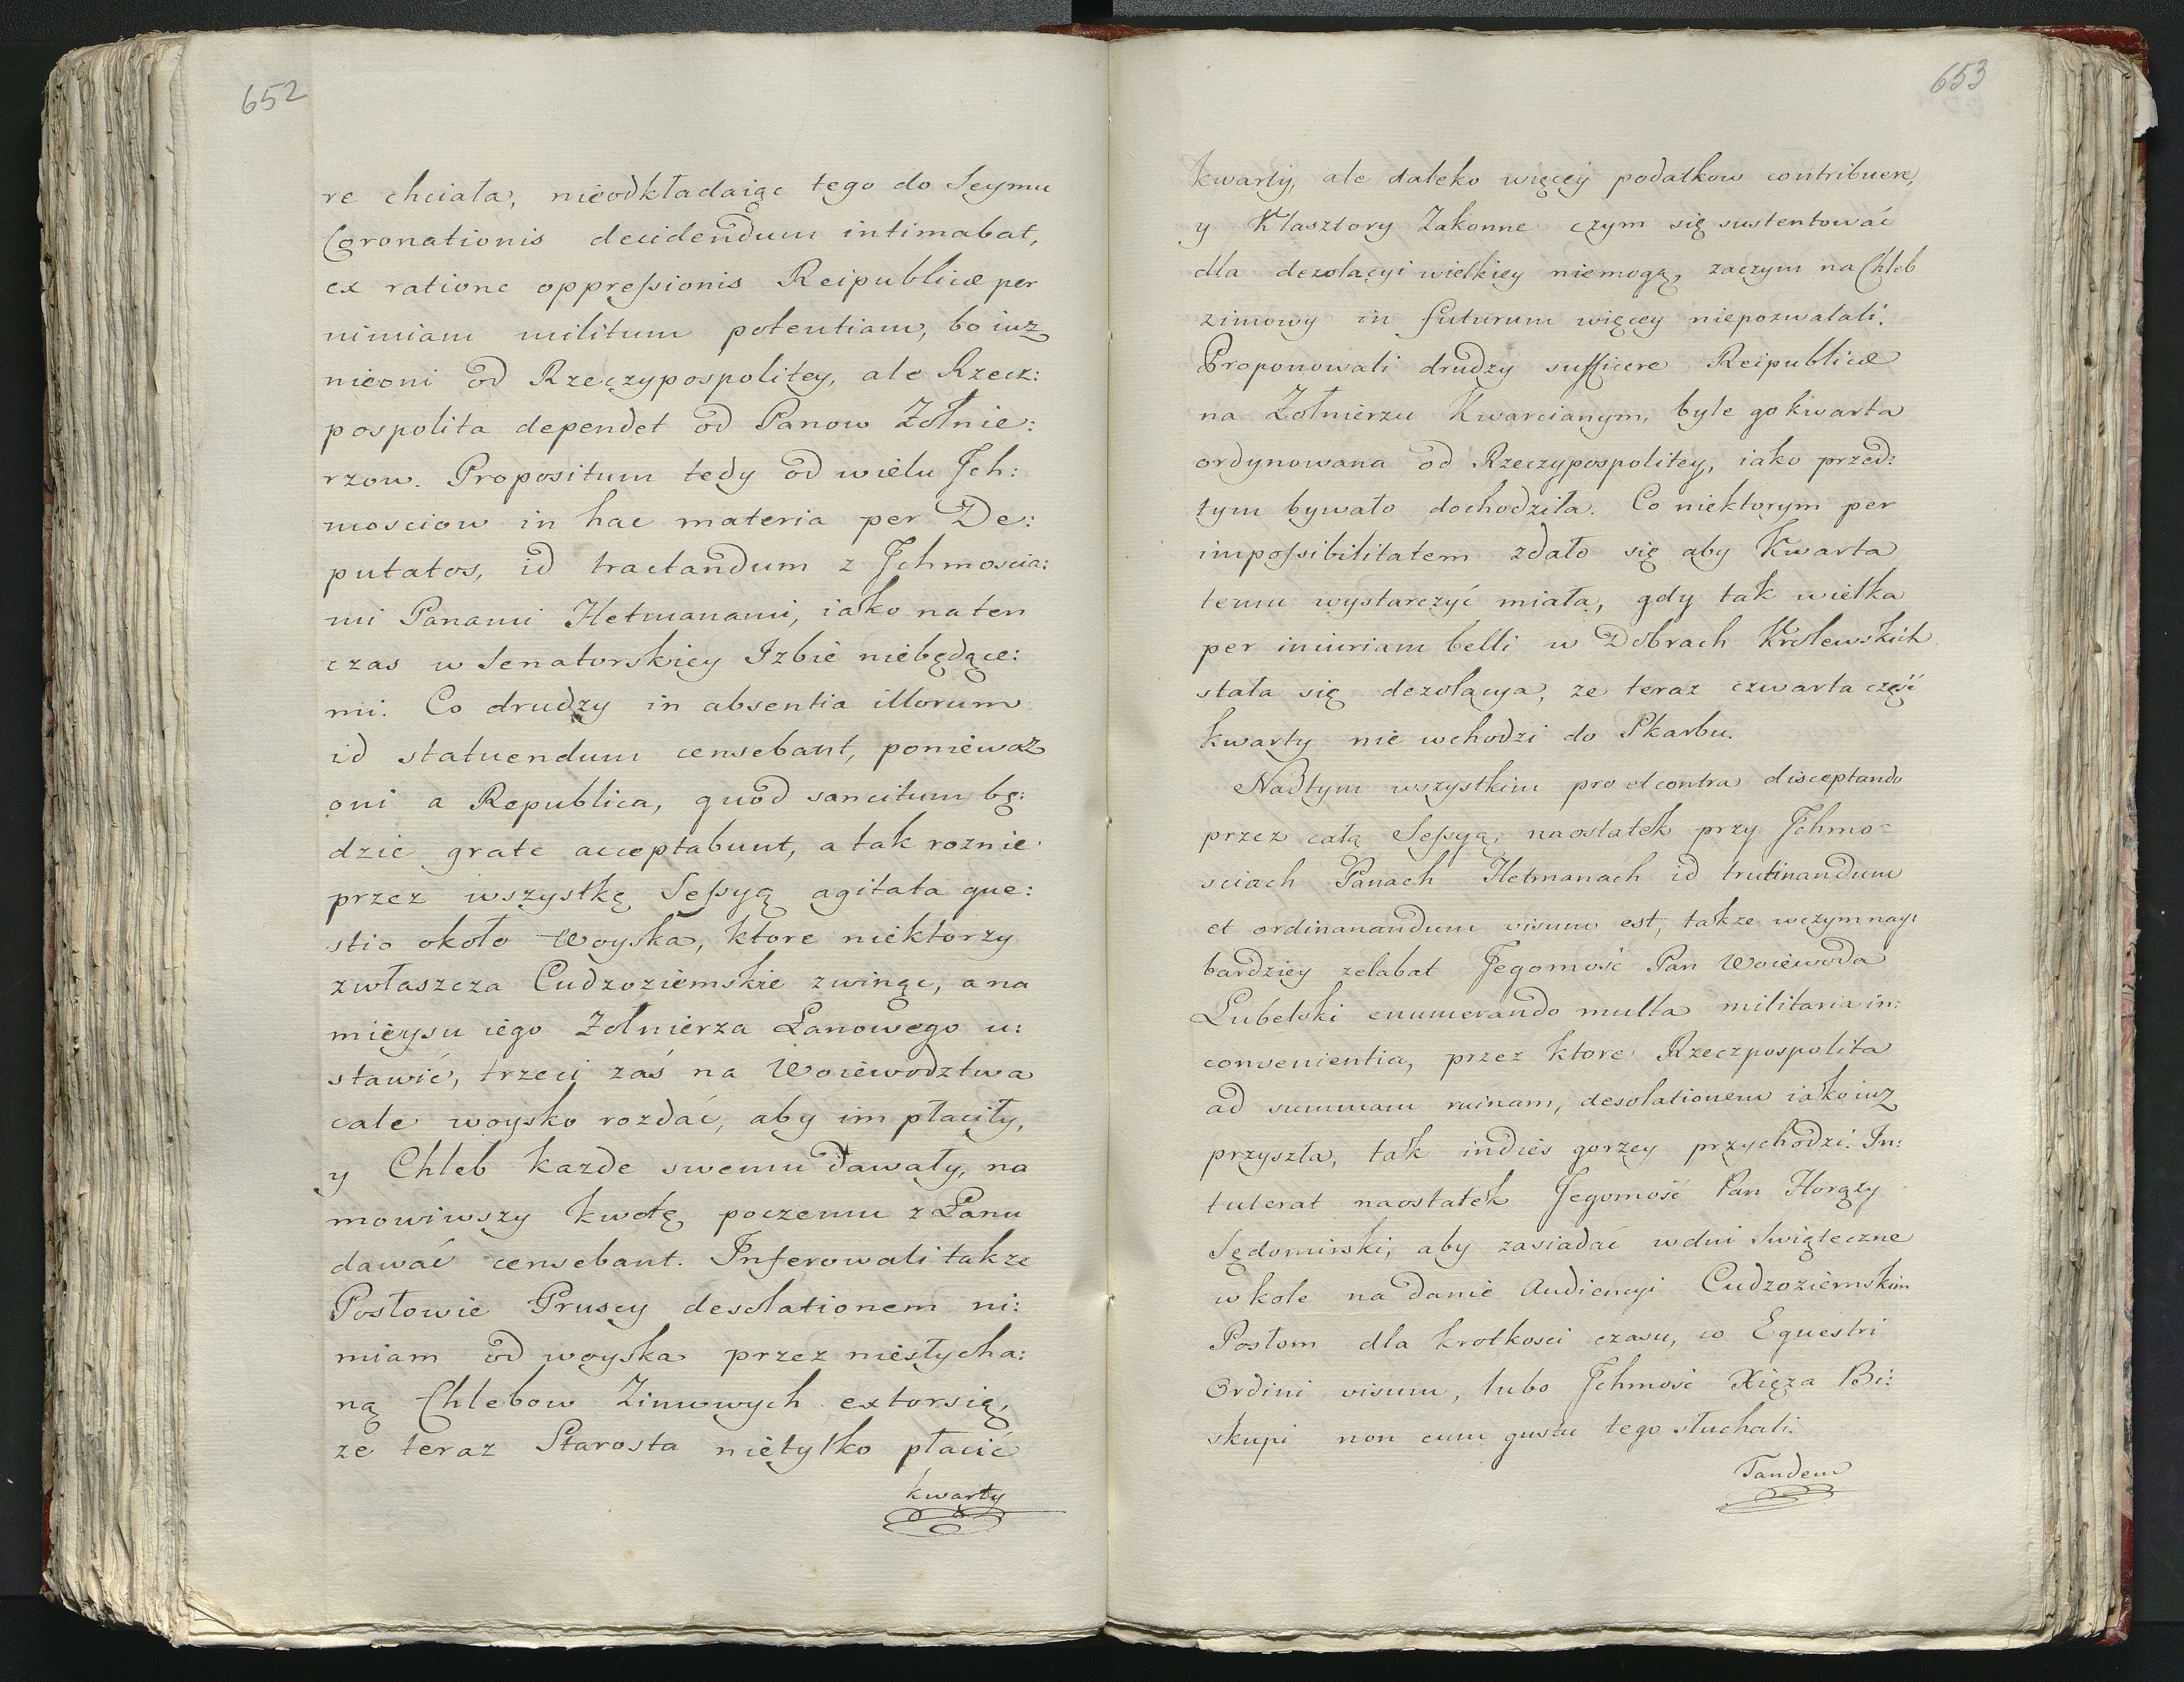 652
re chciała, nieodkładaiąc tego do Seymu
Coronationis decidendum intimabat,
ex ratione oppreſsionis Reipublicæ per
nimiam militum potentiam, bo iuz
nieoni od Rzeczypospolitey, ale Rzecz:
pospolita dependet od Panow Zołnie:
rzow. Propositum tedy od wielu Jch:
mosciow in hac materia per De:
putatos, id tractandum z Jchmoscia:
mi Panami Hetmanami, iako na ten
czas w Senatorskiey Izbie niebędące:
mi. Co drudzy in absentia illorum
id statuendum censebant, poniewaz
oni a Republica, quod sancitum bę:
dzie grate acceptabunt, a tak roznie
przez wszystkę Seſsyą agitata que:
stio około Woyska, ktore niektorzy
zwłaszcza Cudzoziemskie zwinąc, a na
mieysu iego Zołnierza Łanowego u:
stawić, trzeci zaś na Woiewodztwa
całe woysko rozdać, aby im płaciły,
y Chleb kazde swemu dawały, na
mowiwszy kwotę poczemu z Łanu
dawać censebant. Jnferowali takze
Posłowie Pruscy desolationem ni:
miam od woyska przez niesłycha:
ną Chlebow Zimowych extorsią,
ze teraz Starosta nietylko płacić
kwarty
653
kwarty, ale daleko więcey podatkow contribuere,
y Klasztory Zakonne czym się sustentować
dla dezolacyi wielkiey niemogą, zaczym na Chleb
zimowy in futurum więcey niepozwalali.
Proponowali drudzy sufficere Reipublicæ
na Zołnierzu Kwarcianym, byle go kwarta
ordynowana od Rzeczypospolitey, iako przed:
tym bywało dochodziła. Co niektorym per
impoſsibilitatem zdało się aby Kwarta
temu wystarczyć miała, gdy tak wielka
per iniuriam belli w Dobrach Krolewskich
stała się dezolacya, ze teraz czwarta część
kwarty nie wchodzi do Skarbu.
Nadtym wszystkim pro et contra disceptando
przez całą Seſsyą, naostatek przy Jchmo=
sciach Panach Hetmanach id trutinandum
et ordinanandum visum est, takze wczym nay:
bardziey zelabat Jegomość Pan Woiewoda
Lubelski enumerando multa militaria in:
convenientia, przez ktore Rzeczpospolita
ad summam ruinam, desolationem iako iuz
przyszła, tak indies gorzey przychodzi. In:
tulerat naostatek Jegomość Pan Horązy
Sędomirski, aby zasiadać w dni Swiąteczne
w kole na danie Audiencyi Cudzoziemskim
Posłom dla krotkosci czasu, co Equestri
Ordini visum, lubo Jchmość Xięza Bi:
skupi non cum gustu tego słuchali.
Tandem